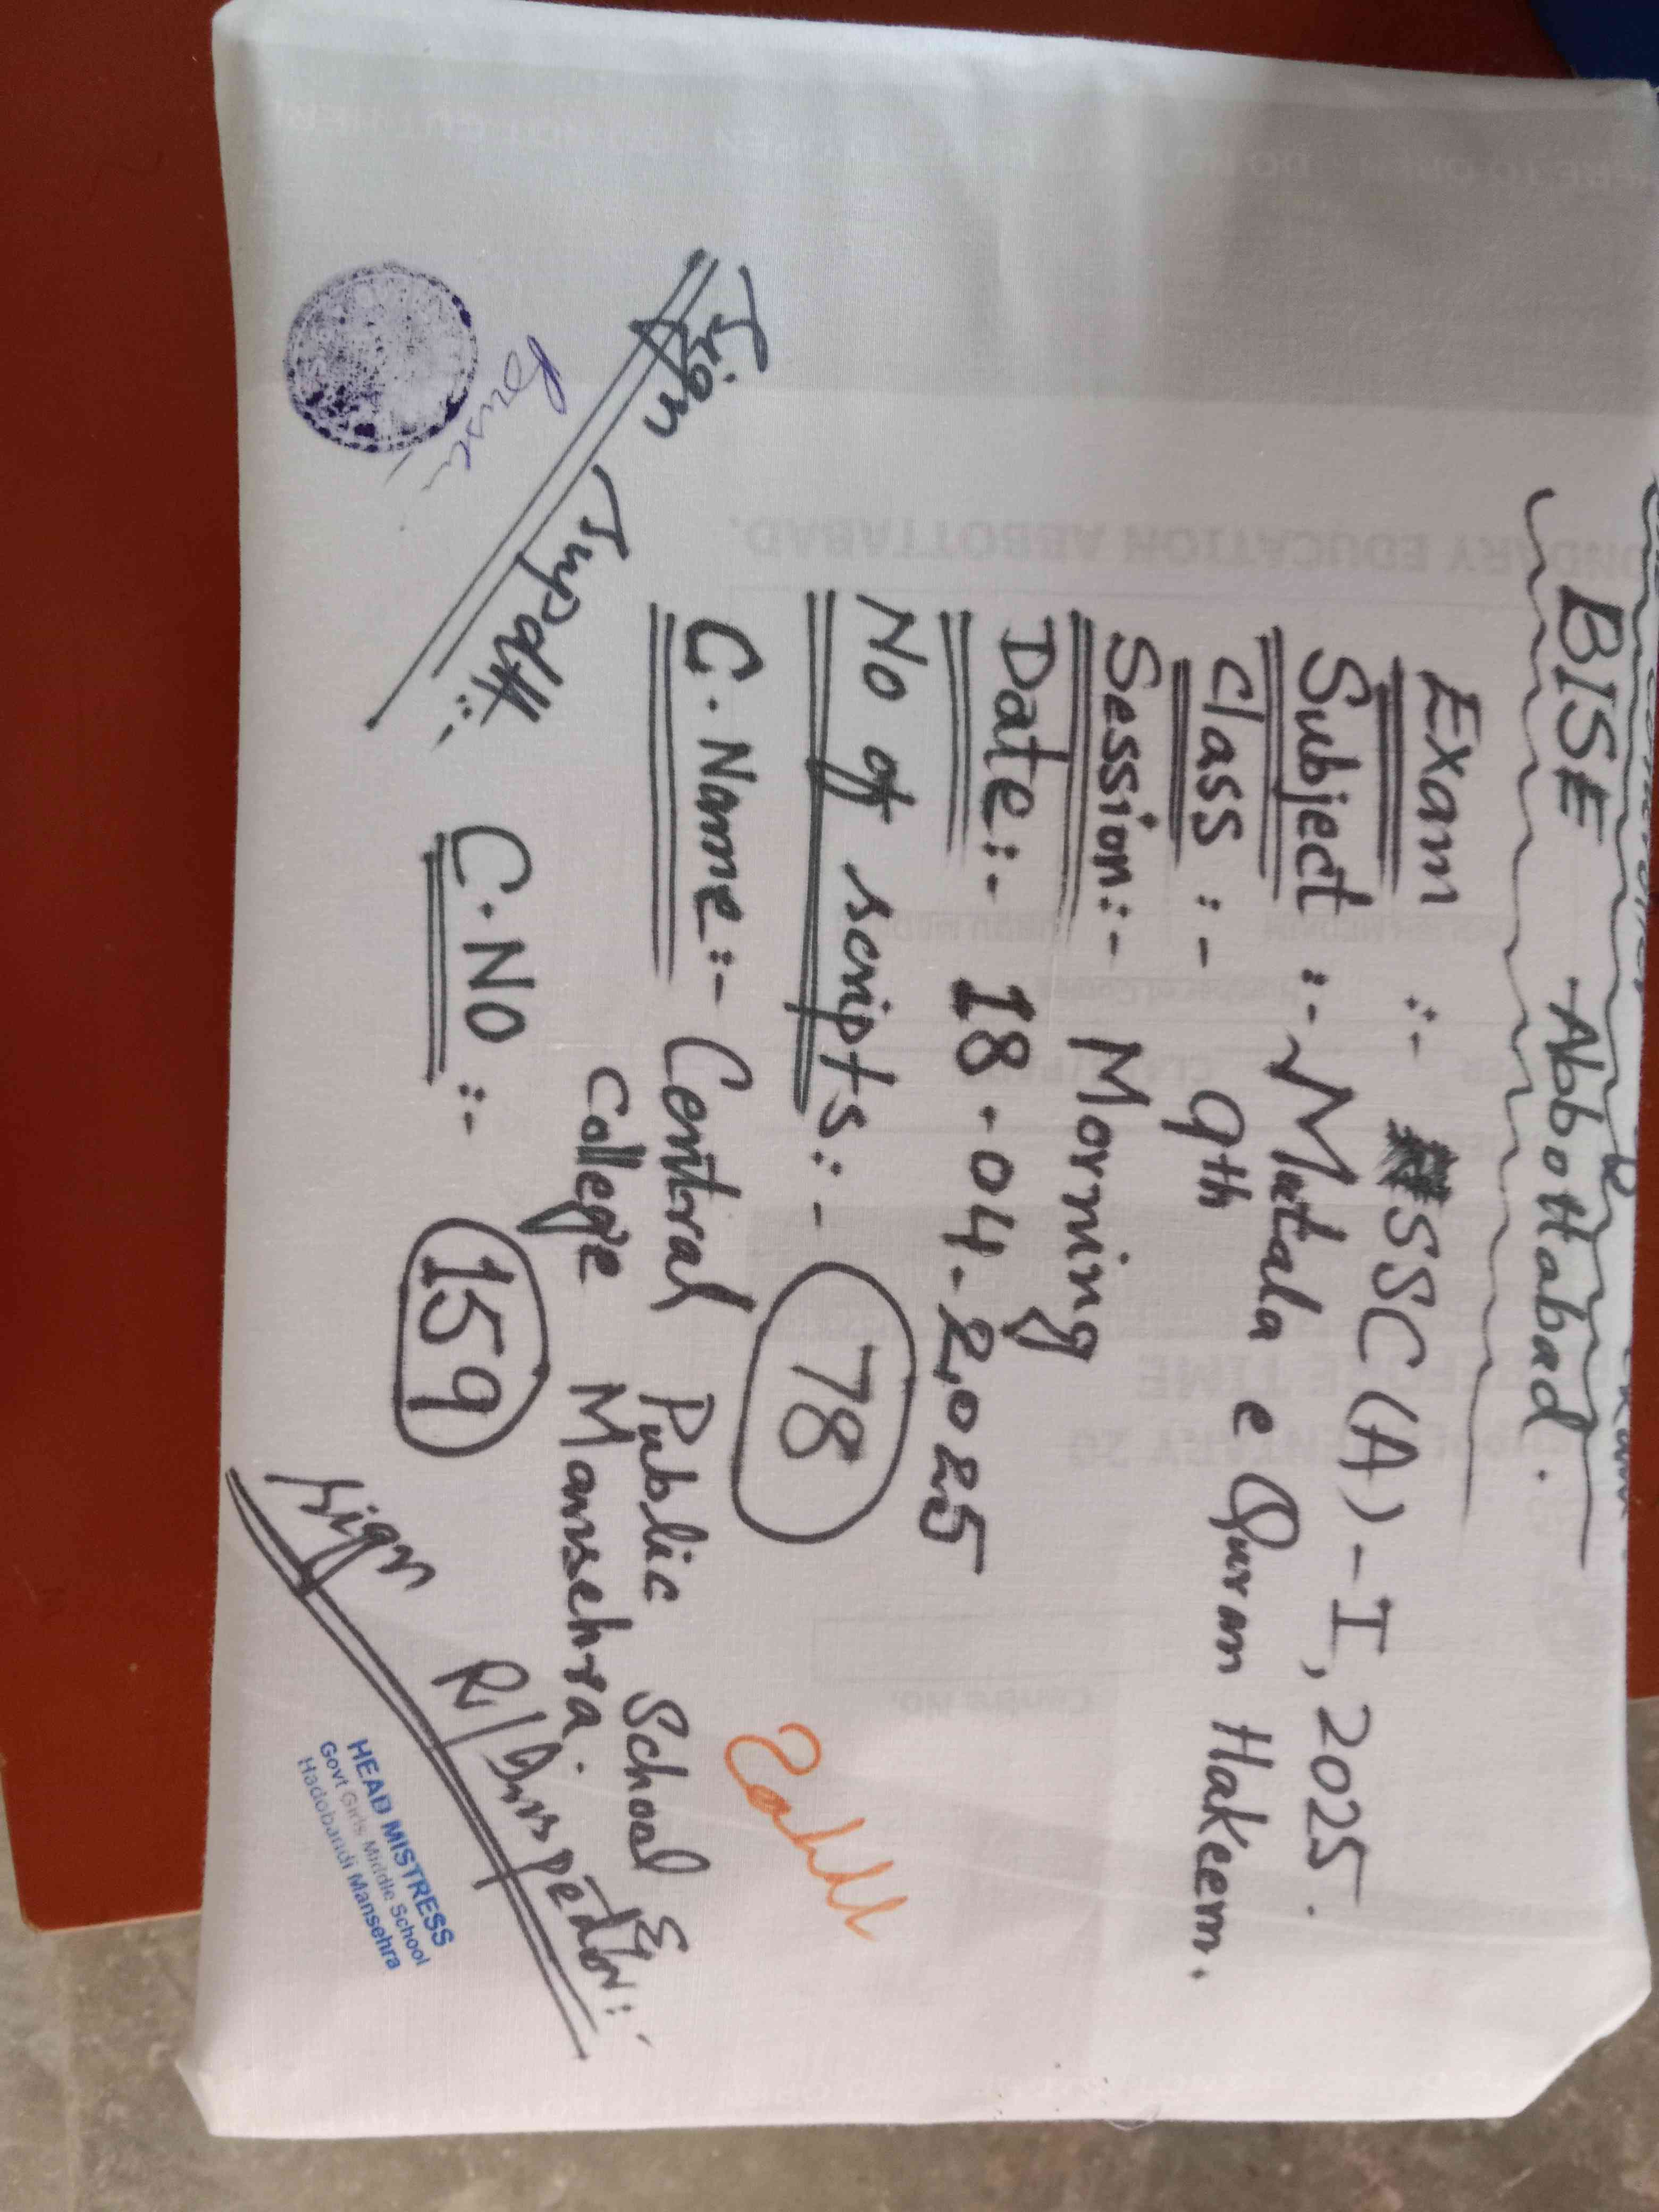 BISE - Abbottabad.
Exam :- SSC(A)-I, 2025.
Subject :- Mutala e Quran Hakeem.
Class :- 9th
Session:- Morning
Date:- 18-04-2025
No of scripts:- 78
C.Name:- Central Public School &
College Mansehra.
C.NO :- 159
Sign Supdtt:-
Sign R/Inspector:-
HEAD MISTRESS
Govt Girls Middle School
Hadobandi Mansehra
ONDARY EDUCATION ABBOTTABAD.
Centre No.